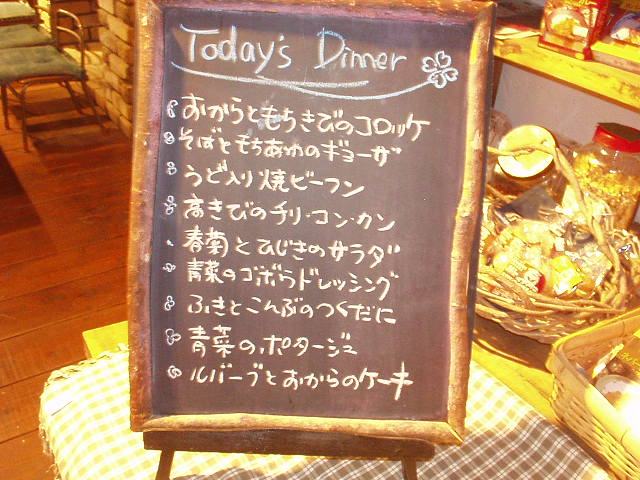 Today's Dinner
おからともちきびのコロッケ
そばともちあわのギョーザ
うど入り焼ビーフン
高きびのチリ・コン・カン
春菊とひじきのサラダ
青菜のゴボウドレッシング
ふきとこんぶのつくだに
青菜のポタージュ
ルバーブとおからのケーキ